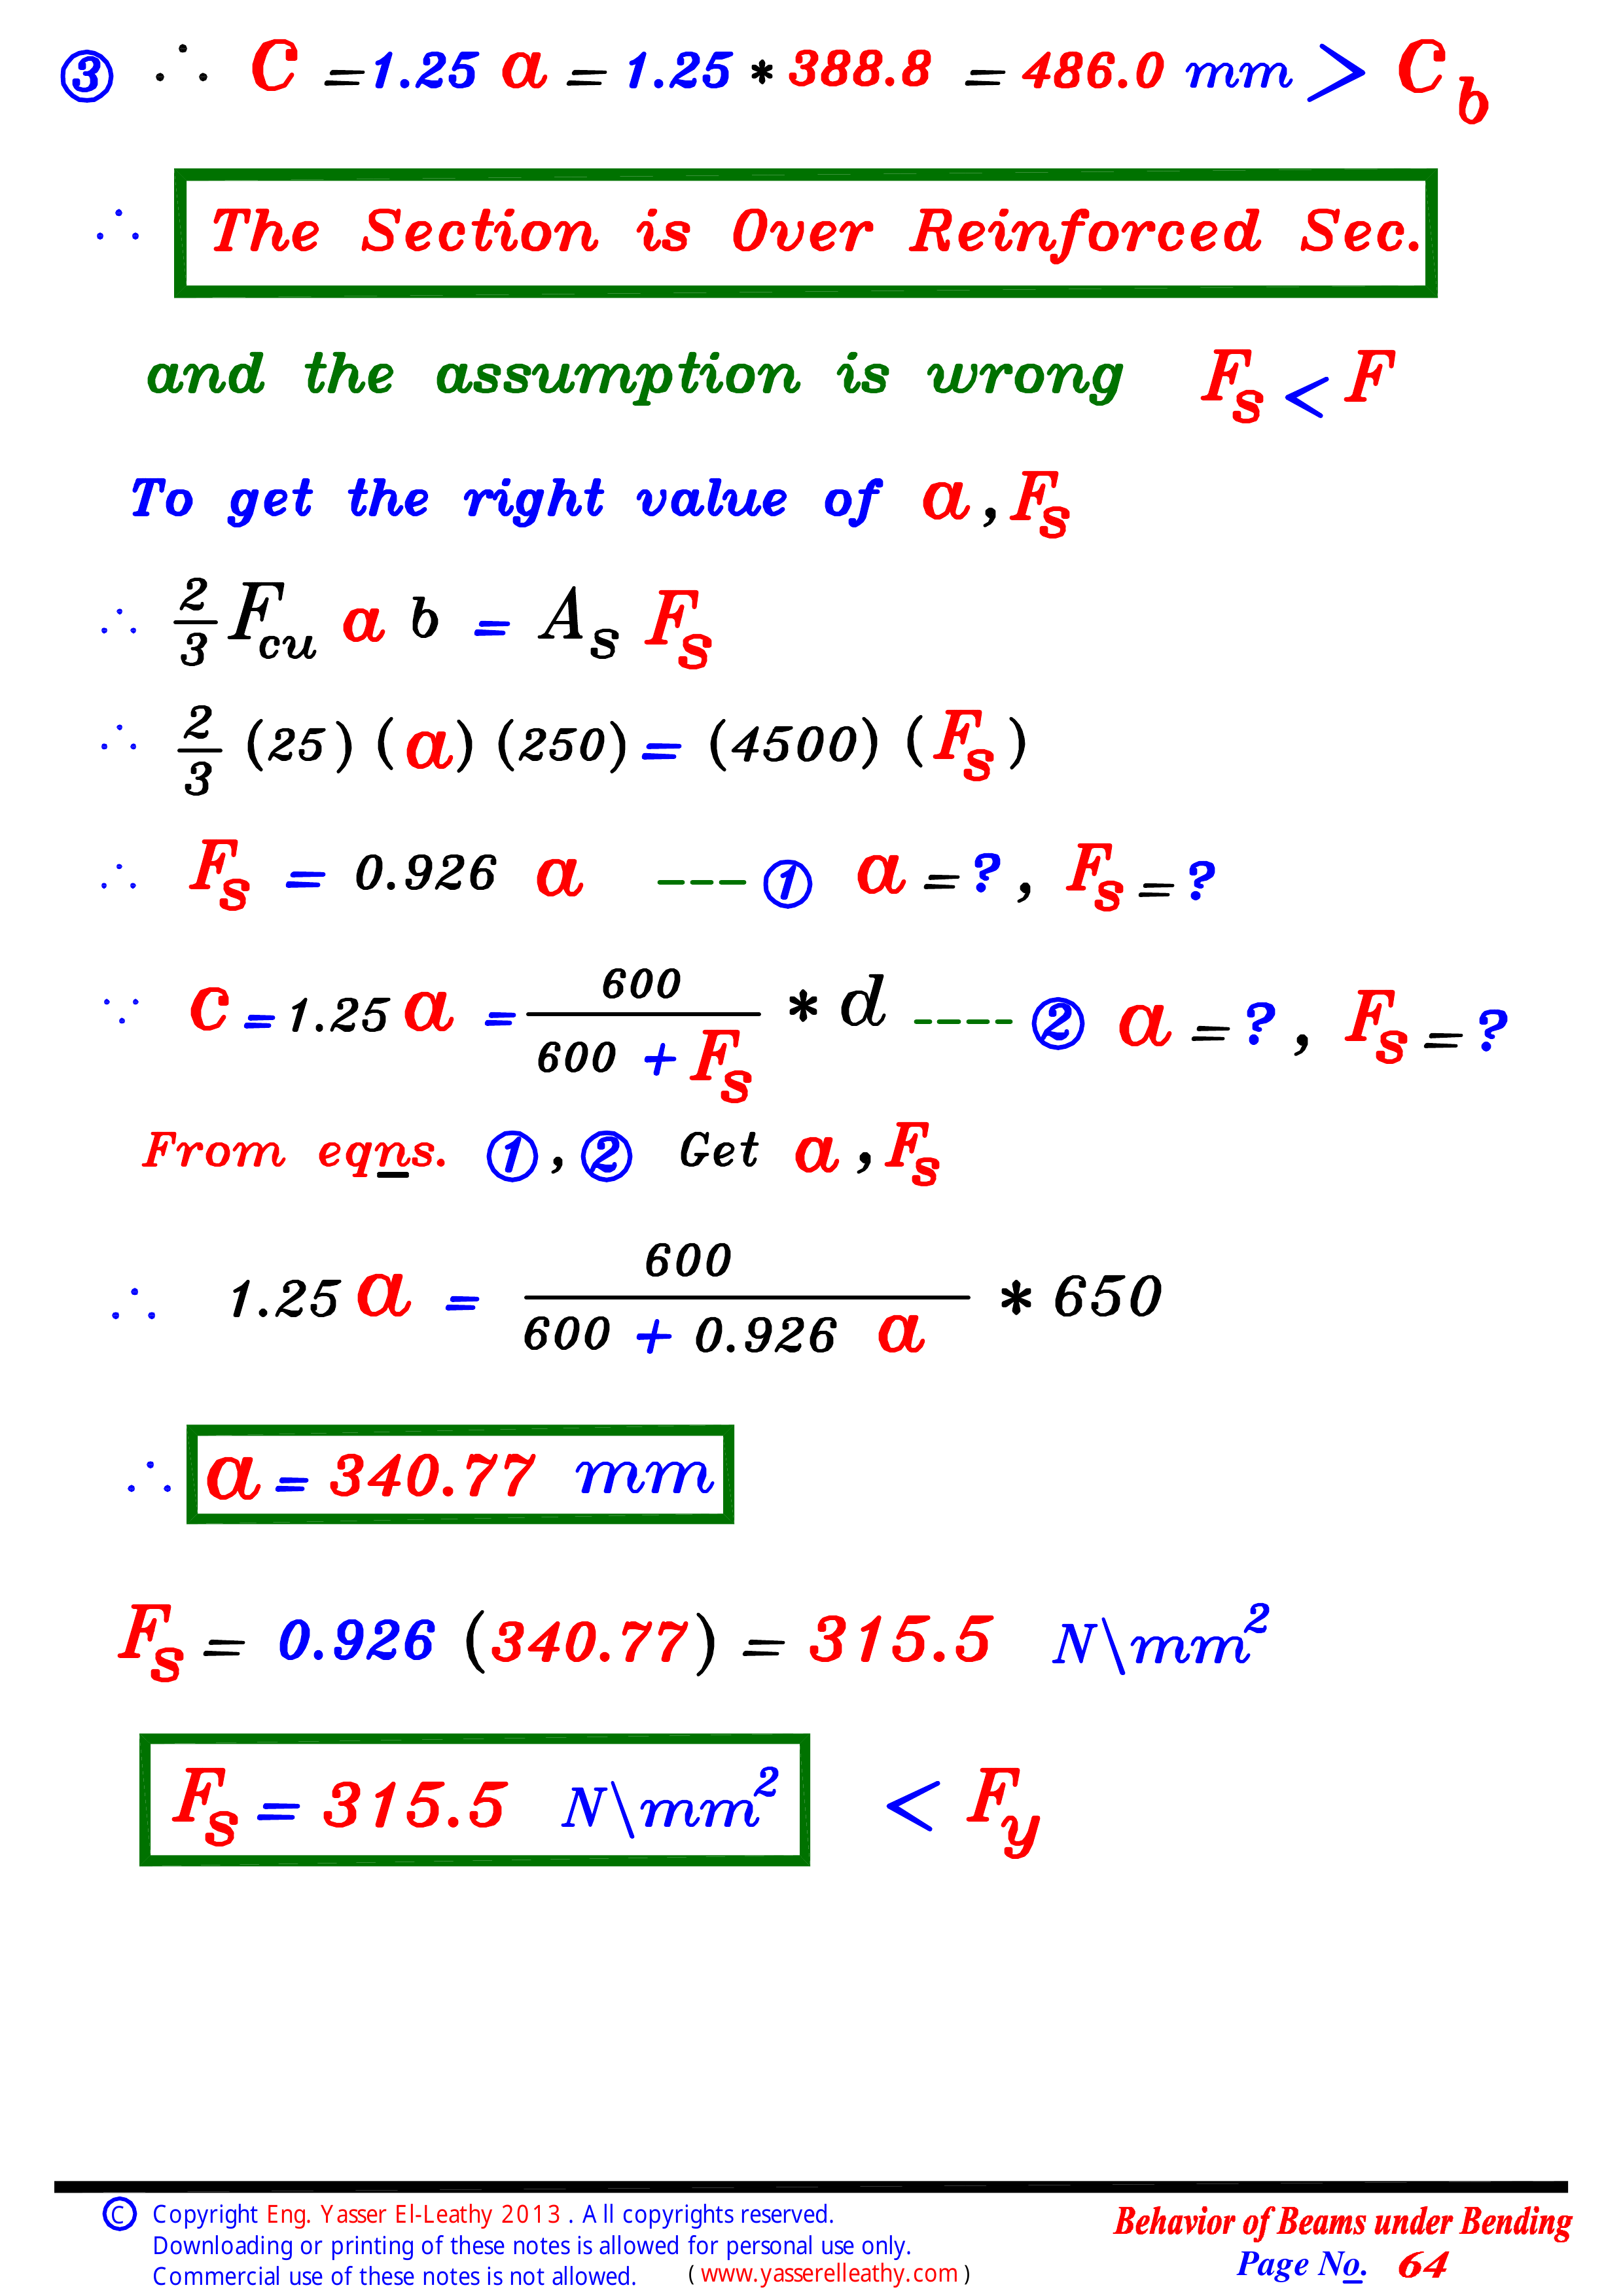 ③ ∴ C = 1.25 a = 1.25 * 388.8 = 486.0 mm > C_b
∴ The Section is Over Reinforced Sec.
and the assumption is wrong F_s < F
To get the right value of a , F_s
∴ 2/3 F_cu a b = A_s F_s
∴ 2/3 (25) (a) (250) = (4500) (F_s)
∴ F_s = 0.926 a --- ① a = ? , F_s = ?
∵ C = 1.25 a = 600 / (600 + F_s) * d ---- ② a = ? , F_s = ?
From eqns. ① , ② Get a , F_s
∴ 1.25 a = 600 / (600 + 0.926 a) * 650
∴ a = 340.77 mm
F_s = 0.926 (340.77) = 315.5 N\mm²
F_s = 315.5 N\mm² < F_y
© Copyright Eng. Yasser El-Leathy 2013 . All copyrights reserved.
Downloading or printing of these notes is allowed for personal use only.
Commercial use of these notes is not allowed. ( www.yasserelleathy.com )
Behavior of Beams under Bending
Page No. 64